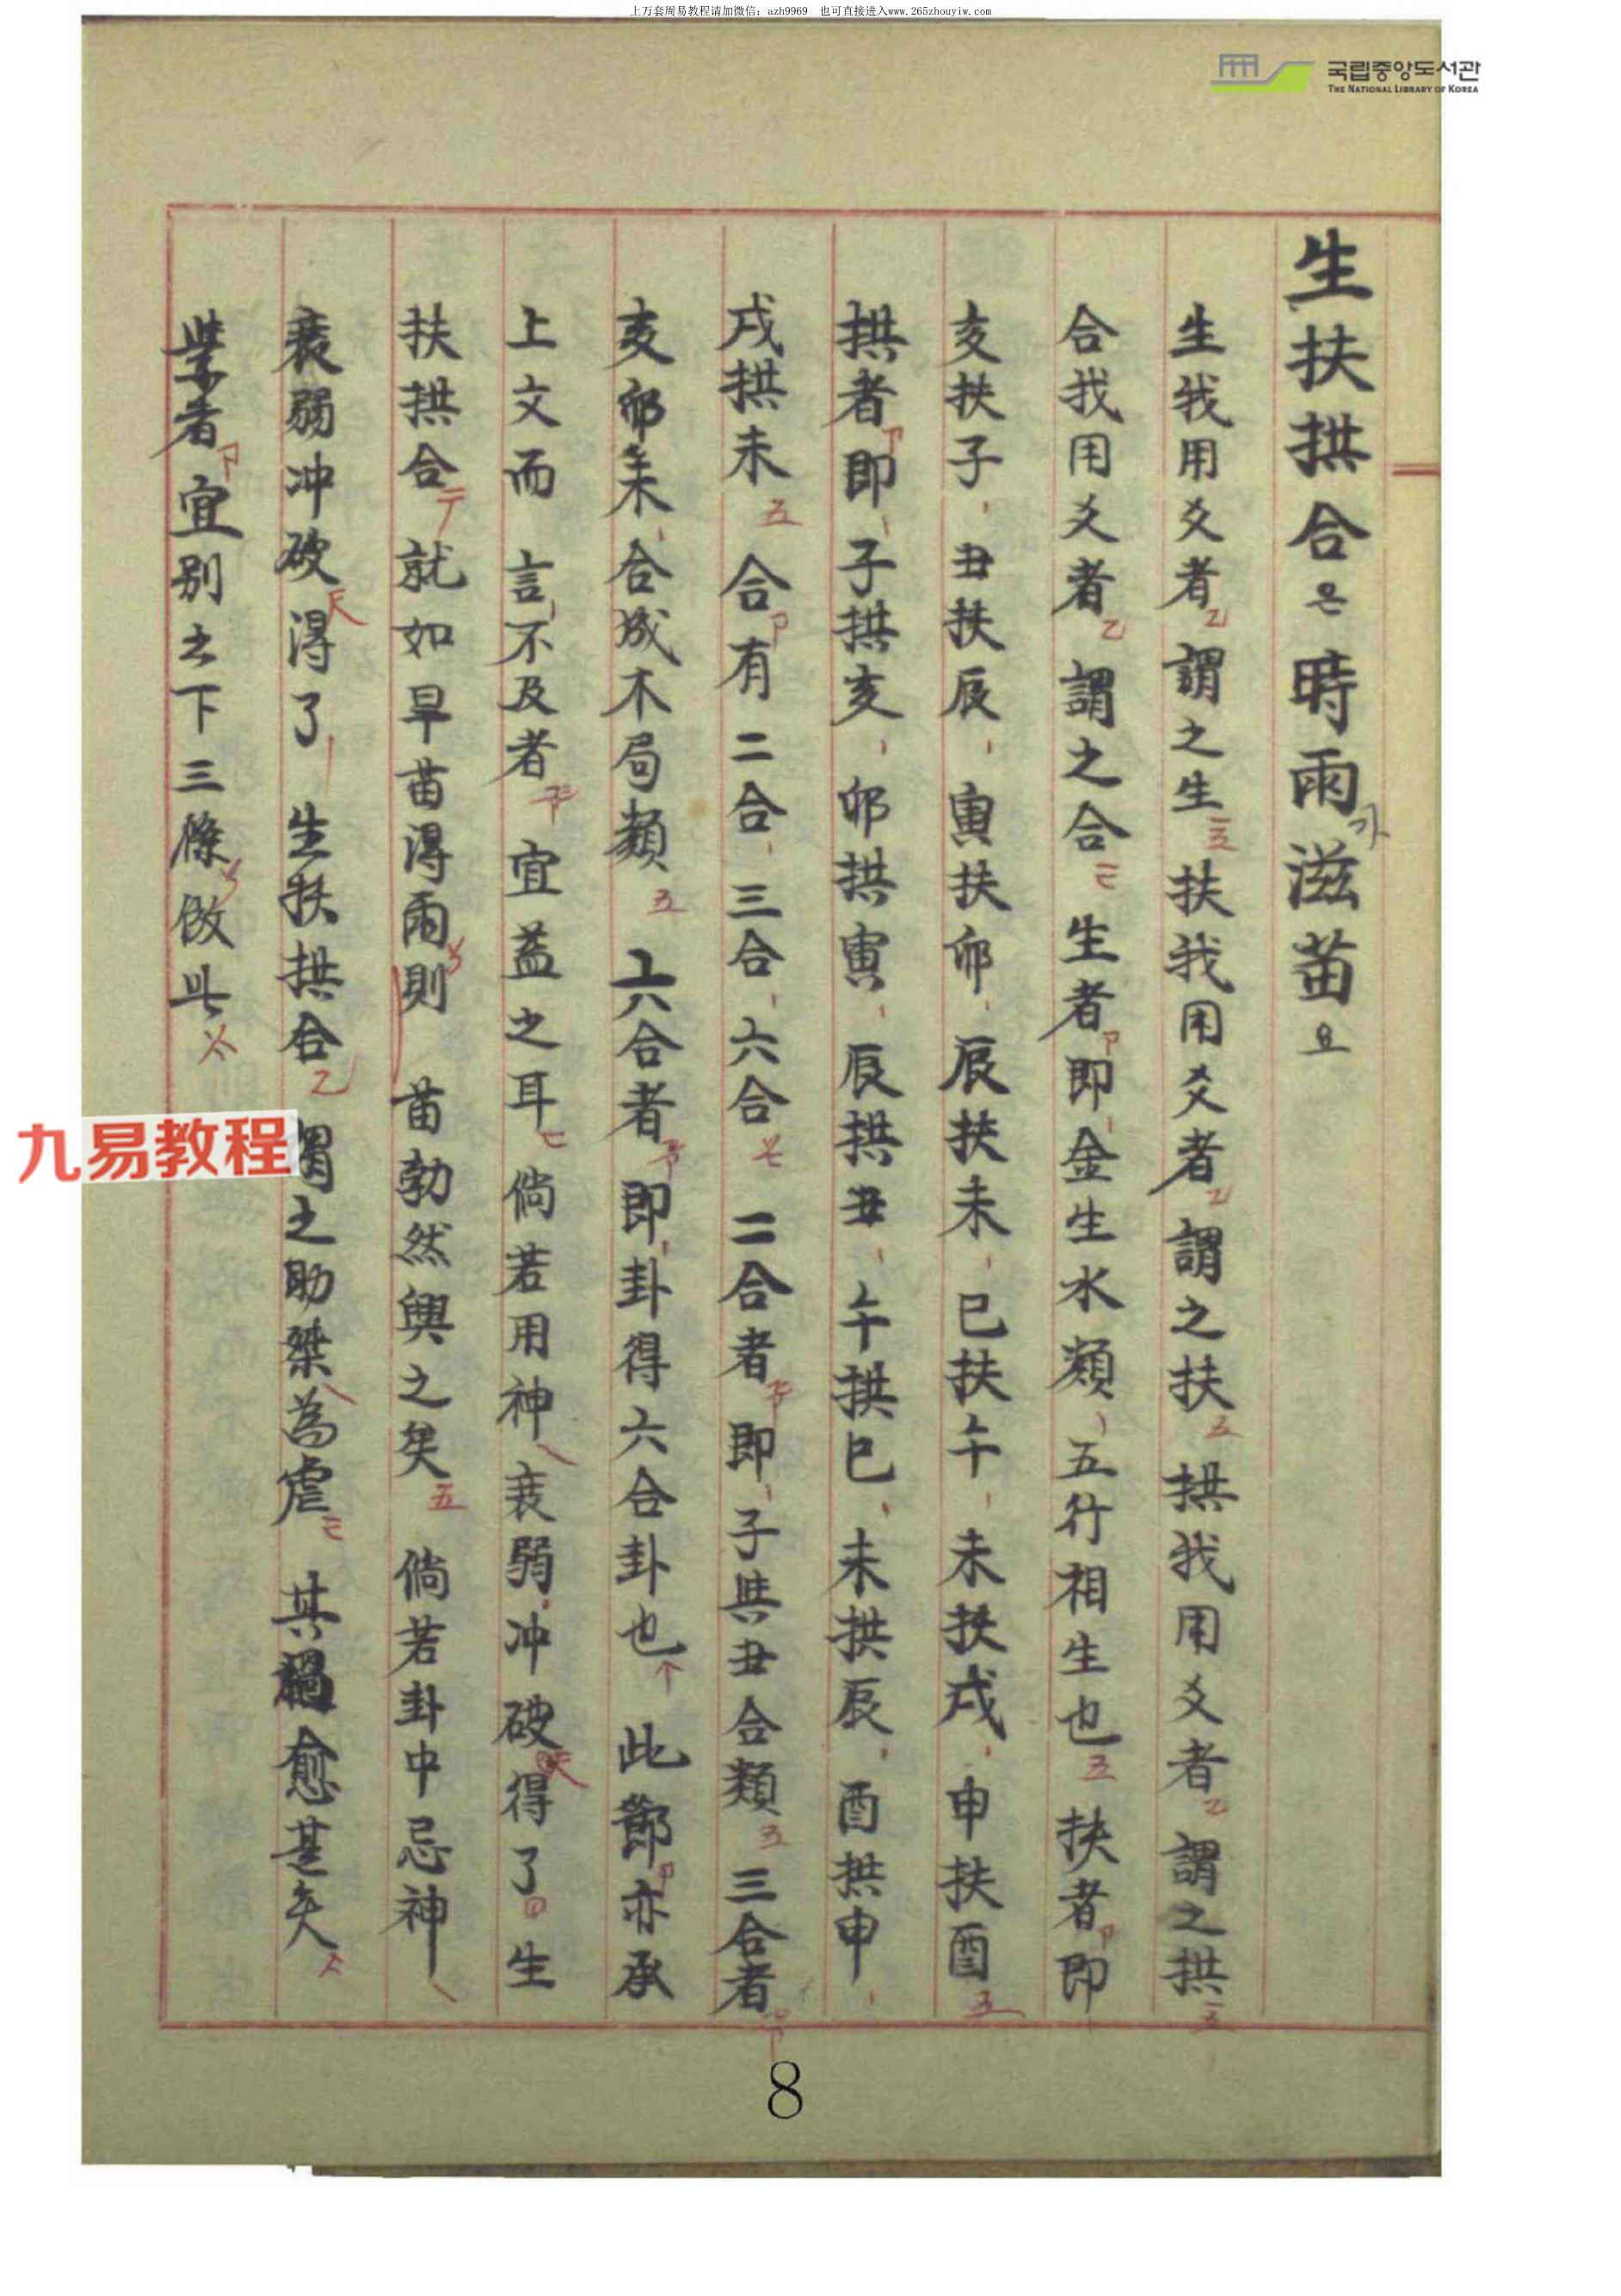 上万套周易教程请加微信：azh9969　也可直接进入www.265zhouyiw.com
국립중앙도서관
THE NATIONAL LIBRARY OF KOREA
生扶拱合은時雨가滋苗요
生我用爻者乙謂之生五扶我用爻者乙謂之扶五拱我用爻者乙謂之拱五
合我用爻者乙謂之合生者卩即金生水類五行相生也五扶者卩即
亥扶子丑扶辰寅扶卯辰扶未巳扶午未扶戌申扶酉五
拱者卩即子拱亥卯拱寅辰拱丑午拱巳未拱辰酉拱申
戌拱未五合卩有二合三合六合二合者即子與丑合類五三合者
亥卯未合成木局類五六合者即卦得六合卦也此節卩亦承
上文而言不及者宜益之耳倘若用神衰弱冲破得了生
扶拱合就如旱苗得雨則苗勃然興之矣五倘若卦中忌神
衰弱冲破得了生扶拱合乙謂之助桀為虐其禍愈甚矣
學者卩宜別之下三條倣此
九易教程
8